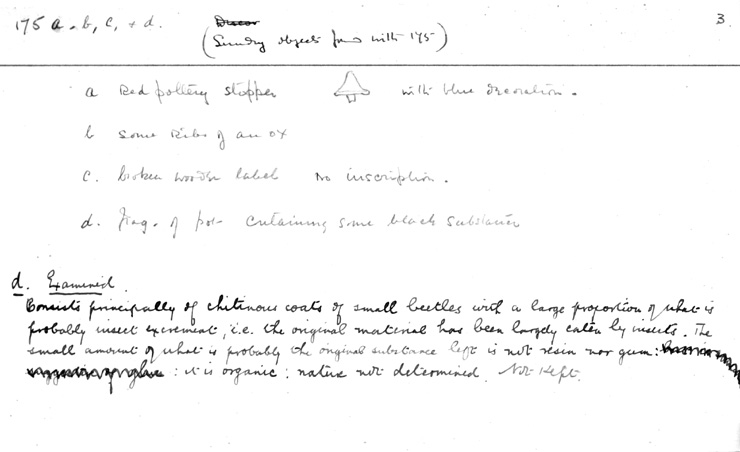 175 a. b, c, + d.
(Sundry objects found with 175)
3.
a Red pottery stopper with blue decoration.
b Some Ribs of an ox
c. broken wooden label No inscription.
d. Frag. of pot containing some black substance
d. Examined.
Consists principally of chitinous coats of small beetles with a large proportion of what is
probably insect excrement, i.e. the original material has been largely eaten by insects. The
small amount of what is probably the original substance left is not resin nor gum:
: it is organic: nature not determined. Not Kept.